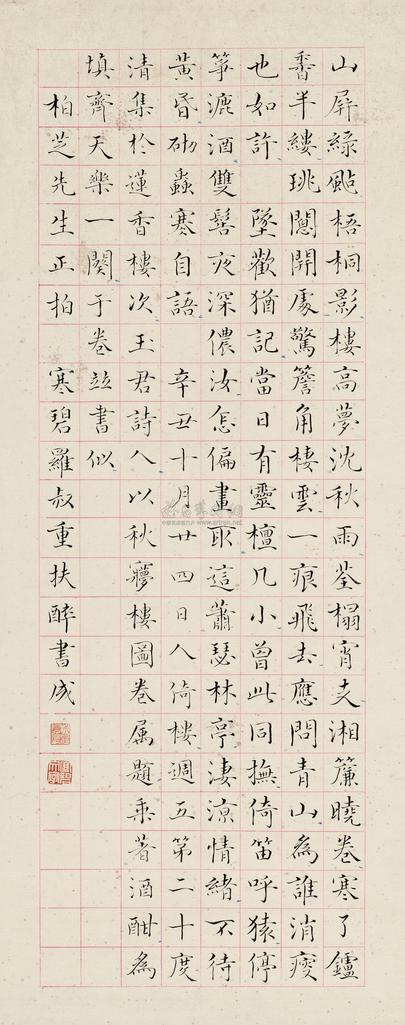 山屏綠颭梧桐影樓高夢沈秋雨荃榻宵支湘簾曉卷寒了鑪
香半縷珧牕開處驚簷角棲雲一痕飛去應問青山為誰消瘦
也如許 墜歡猶記當日有靈檀几小曾此同撫倚笛呼猿停
箏漉酒雙髻夜深儂汝怎偏畫取這蕭瑟林亭淒涼情緒不待
黃昏砌蟲寒自語 辛丑十月廿四日人倚樓週五第二十度
清集於蓮香樓次玉君詩人以秋夢樓圖卷属題乘著酒酣為
填齊天樂一闋于卷竝書似
柏芝先生正拍 寒碧羅叔重扶醉書成